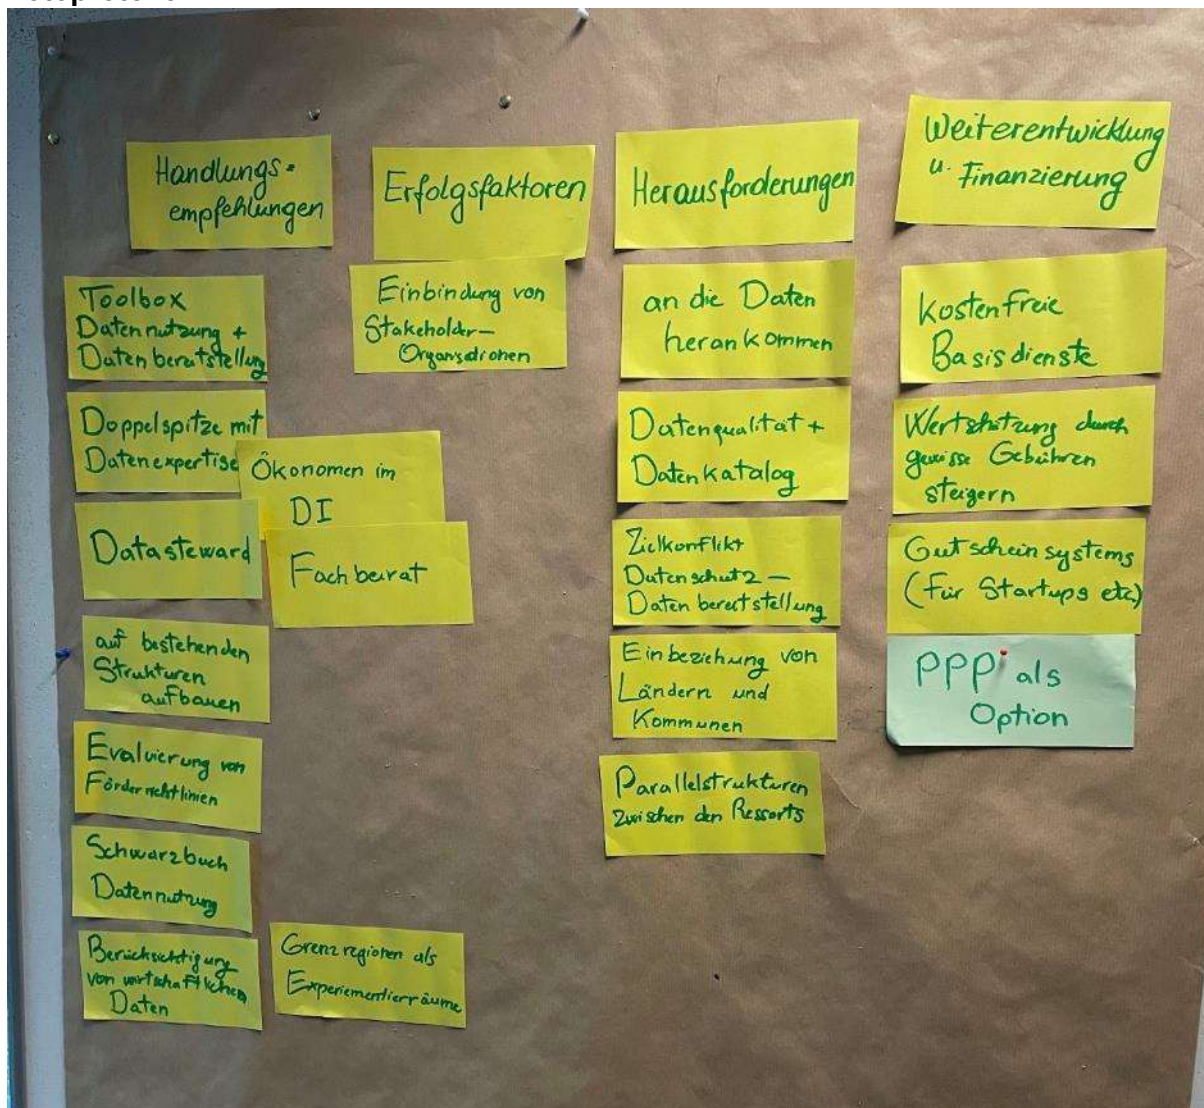 Handlungs-
empfehlungen
Toolbox
Datennutzung +
Datenbereitstellung
Doppelspitze mit
Datenexpertise
Ökonomen im
DI
Fachbeirat
Datasteward
auf bestehenden
Strukturen
aufbauen
Evaluierung von
Förderrichtlinien
Schwarzbuch
Datennutzung
Berücksichtigung
von wirtschaftlichen
Daten
Grenzregionen als
Experiementierräume
Erfolgsfaktoren
Einbindung von
Stakeholder-
Organsdionen
Herausforderungen
an die Daten
herankommen
Datenqualität +
Datenkatalog
Zielkonflikt
Datenschutz –
Datenbereitstellung
Einbeziehung von
Ländern und
Kommunen
Parallelstrukturen
zwischen den Ressorts
Weiterentwicklung
u. Finanzierung
Kostenfreie
Basisdienste
Wertschätzung durch
gewisse Gebühren
steigern
Gutscheinsystems
(für Startups etc.)
PPP als
Option